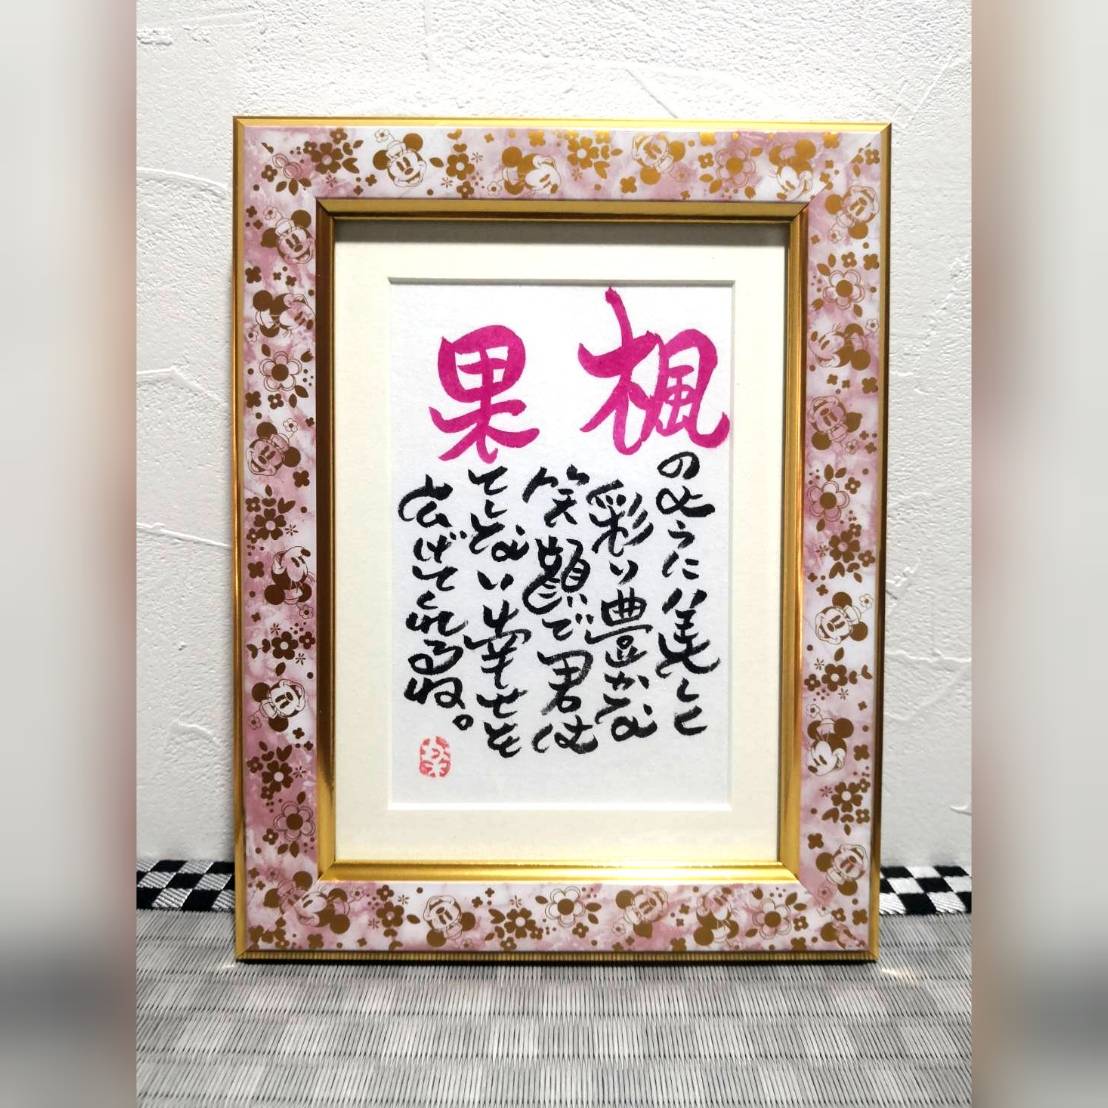 楓のように美しく
彩り豊かな
笑顔で君は
果てしない幸せを
広げてくれるね。